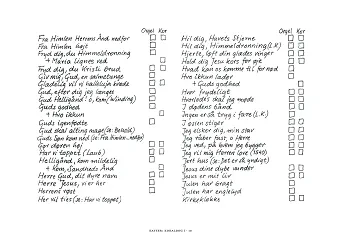 Orgel Kor
Fra Himlen Herrens Ånd nedfor
Fra Himlen højt
Fryd dig, du Himmeldronning
+ Maria Lignes ved
Fryd dig, du Kristi brud
Giv mig, Gud, en salmetunge
Glædelig vil vi halleluja kvæde
Gud, efter dig jeg længes
Gud Helligånd! o, kom (Winding)
Gud skal alting mage (se: Behold)
Guds igenfødte
Gør døren høj
Har vi toppet (Laub)
Helligånd, kom mildelig
+ kom, Sandheds Ånd
Herre Gud, dit dyre navn
Herre Jesus, vi er her
Herrens røst
Her vil ties (se: Har vi toppet)
Orgel Kor
Hil dig, Havets Stjerne
Hil dig, Himmeldronning (L.K.)
Hjerte, løft din glædes vinger
Hold dig Jesu kors for øje
Hvad kan os komme til for nød
Hvo ikkun lader
+ Guds godhed
Hvor frydeligt
Hvorledes skal jeg møde
I dødens bånd
Ingen er så tryg i fare (L.K.)
I østen stiger
Jeg elsker dig, min stav
Jeg råber fast, o Herre
Jeg ved, på hvem jeg bygger
Jeg vil mig Herren love (1540)
Jert hus (se: Det er så yndigt)
Jesus dine dybe vunder
Jesus er mit liv
Julen har bragt
Julen har englelyd
Kirkeklokke